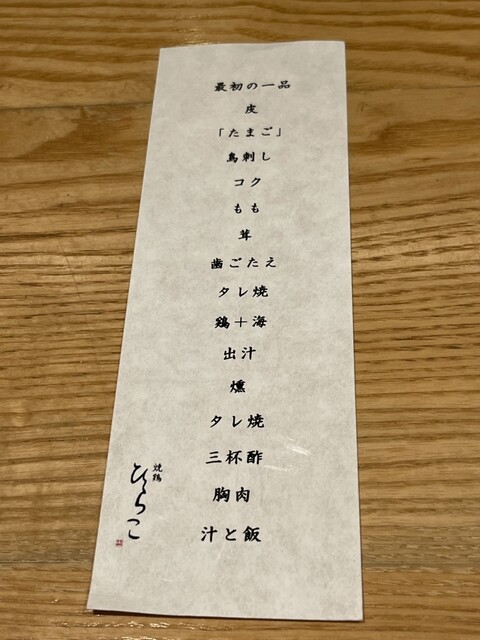 最初の一品
皮
「たまご」
鳥刺し
コク
もも
茸
歯ごたえ
タレ焼
鶏＋海
出汁
燻
タレ焼
三杯酢
胸肉
汁と飯
焼鶏
ひらこ